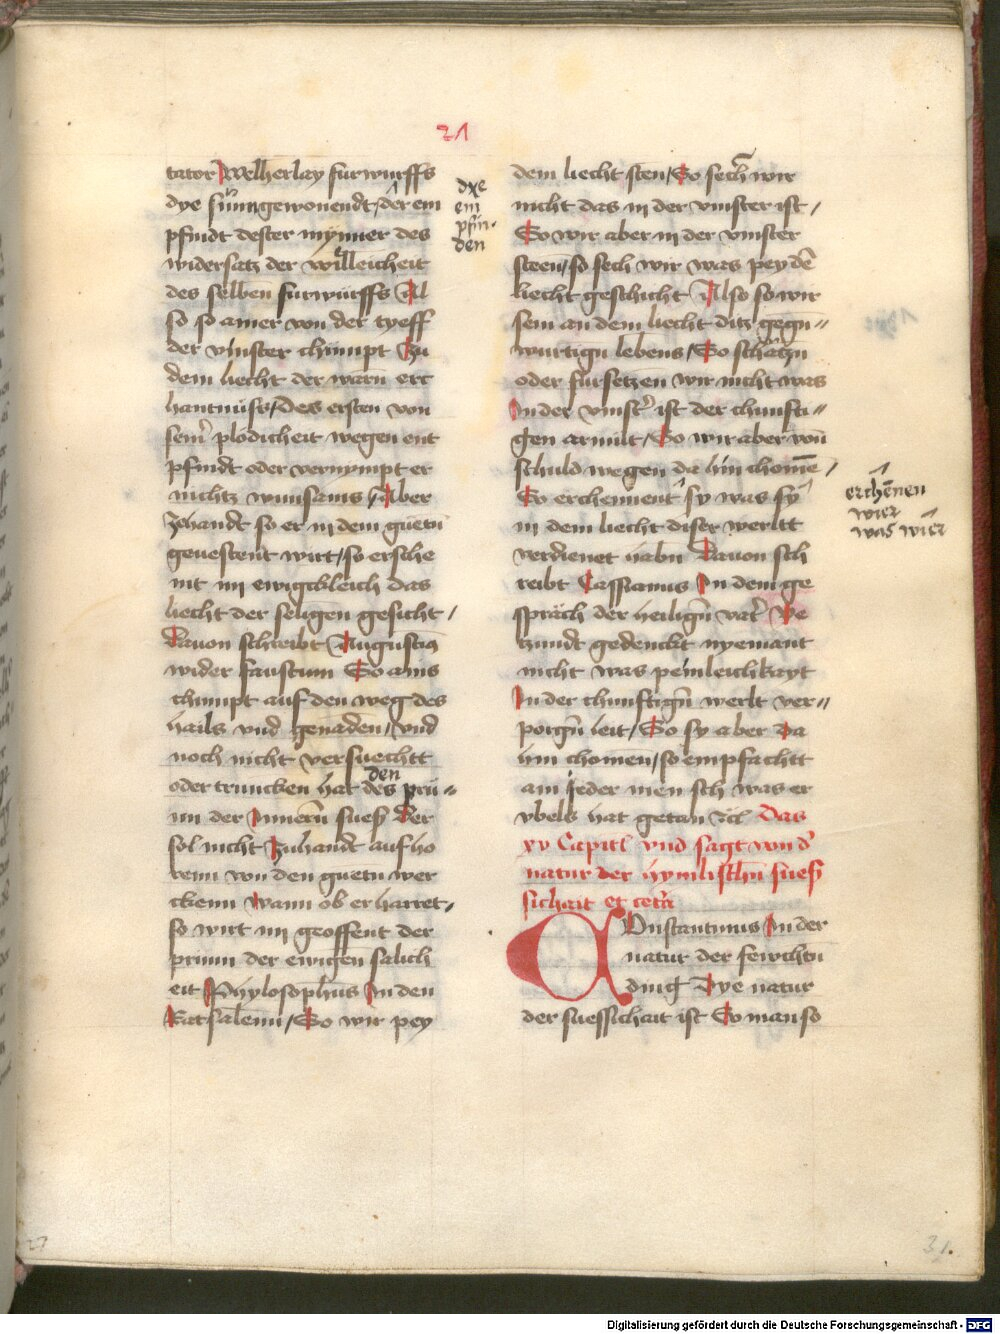 21
tator Welherlay furwurffs
dye sun̄ gewonendt / der em
pfindt dester mynner des
widersatz der willeicheit
des selben furwurffs Al
so so ainer von der tyeff
der vinster chumpt zu
dem liecht der warn erc
hantnüss / Des ersten von
seinr plodicheit wegen ent
pfindt oder vernympt er
nichtz wunsams / Aber
zehandt so er in dem guetn
geuestent wirt / so ersche
int im ewigckleich das
liecht der seligen gesicht /
Dauon schreibt Augustin9
wider faustum So ains
chumpt auf den weg des
hails vnd genaden / vnd
noch nicht versuechtt
oder truncken hat des prü=
den
nn der Innern suess Der
sol nicht zuhandt aufho
renn von den guetn wer
ckenn Wann ob er harret /
so wirt im geoffent der
prunn der ewigen salich
eit Phylosophus In den
Ratsalenn / So wir pey
dxe
em
pfin-
den
dem liecht sten / So sech wir
nicht das in der vinster ist /
So wir aber in der vinster
steen / so sech wir was pey dē
liecht geschicht Also so wir
sein an dem liecht ditz gegn=
wurtign lebens / So schätzn
oder fürsetzen wir nicht was
In der vinstr ist der chunfti=
gen armüt / So wir aber von
schuld wegen da hin chomē /
So erchennent sy was sy
in dem liecht diser werltt
verdienet habn Dauon sch
reibt Cassianus In dem ge
spräch der heiligñ vatr Ye
tzundt gedenckt nyemant
nicht was peinleichkayt
In der chunftigñ werlt ver=
porgñ leit / So sy aber da
hin chomen / so empfachtt
ain jeder mensch was er
vbels hat getan ꝛc Das
xv Capitl vnd sagt von dr
natur der hymlischn suess
sichait et cetra
Constantinus In der
natur der feuchtn
ding Dye natur
der suessichait ist So man so
erchēnen
wier
was wier
31.
Digitalisierung gefördert durch die Deutsche Forschungsgemeinschaft - DFG